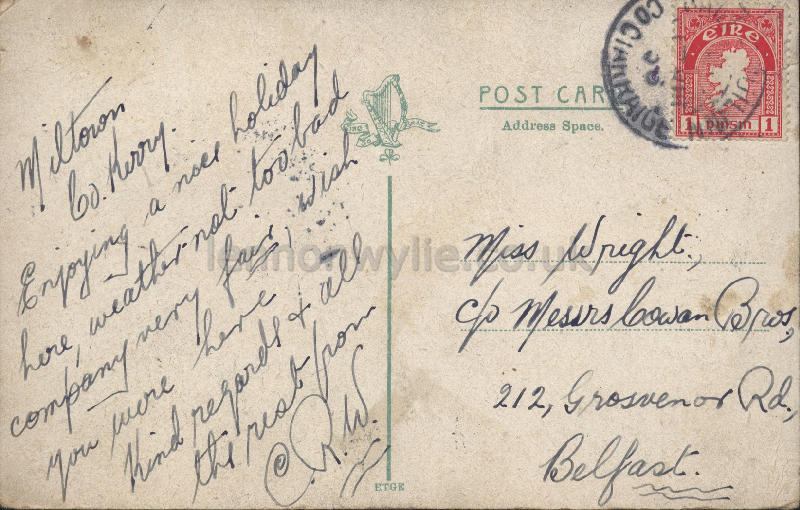 Miltown
Co. Kerry.
Enjoying a nice holiday
here, weather not too bad
company very fair, wish
you were here
Kind regards & all
the rest from
C.R.W.
POST CAR
Address Space.
ETGE
CO CIARRAIGE
EIRE
1 PINSIN 1
Miss Wright,
c/o Messrs Cowan Bros,
212, Grosvenor Rd.,
Belfast.
lemonwylie.co.uk